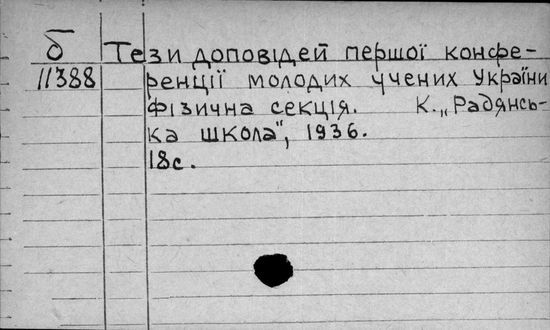 б
11388
Тези доповідей першої конфе-
ренції молодих учених України
Фізична секція. К. „Радянсь-
ка школа", 1936.
18с.